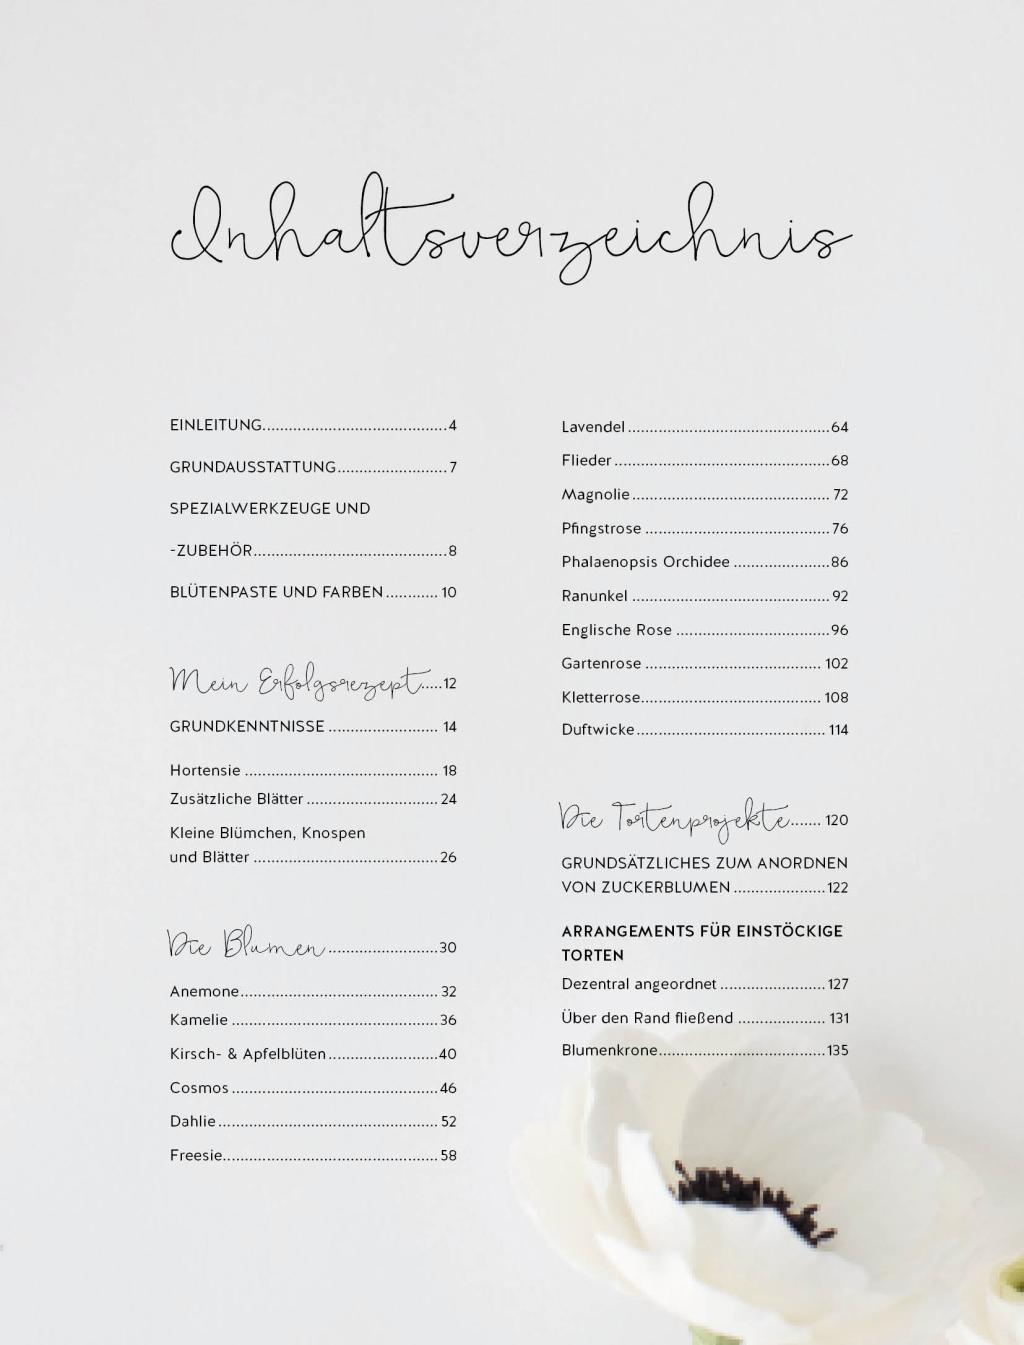 Inhaltsverzeichnis
EINLEITUNG..........................................4
GRUNDAUSSTATTUNG.........................7
SPEZIALWERKZEUGE UND
-ZUBEHÖR............................................8
BLÜTENPASTE UND FARBEN............ 10
Mein Erfolgsrezept.....12
GRUNDKENNTNISSE ......................... 14
Hortensie ............................................ 18
Zusätzliche Blätter .............................. 24
Kleine Blümchen, Knospen
und Blätter ..........................................26
Die Blumen.........................30
Anemone............................................. 32
Kamelie ...............................................36
Kirsch- & Apfelblüten.........................40
Cosmos ...............................................46
Dahlie.................................................. 52
Freesie................................................. 58
Lavendel ..............................................64
Flieder .................................................68
Magnolie............................................. 72
Pfingstrose ..........................................76
Phalaenopsis Orchidee ......................86
Ranunkel .............................................92
Englische Rose ...................................96
Gartenrose ........................................ 102
Kletterrose......................................... 108
Duftwicke........................................... 114
Die Tortenprojekte....... 120
GRUNDSÄTZLICHES ZUM ANORDNEN
VON ZUCKERBLUMEN .....................122
ARRANGEMENTS FÜR EINSTÖCKIGE
TORTEN
Dezentral angeordnet ........................127
Über den Rand fließend .................... 131
Blumenkrone......................................135